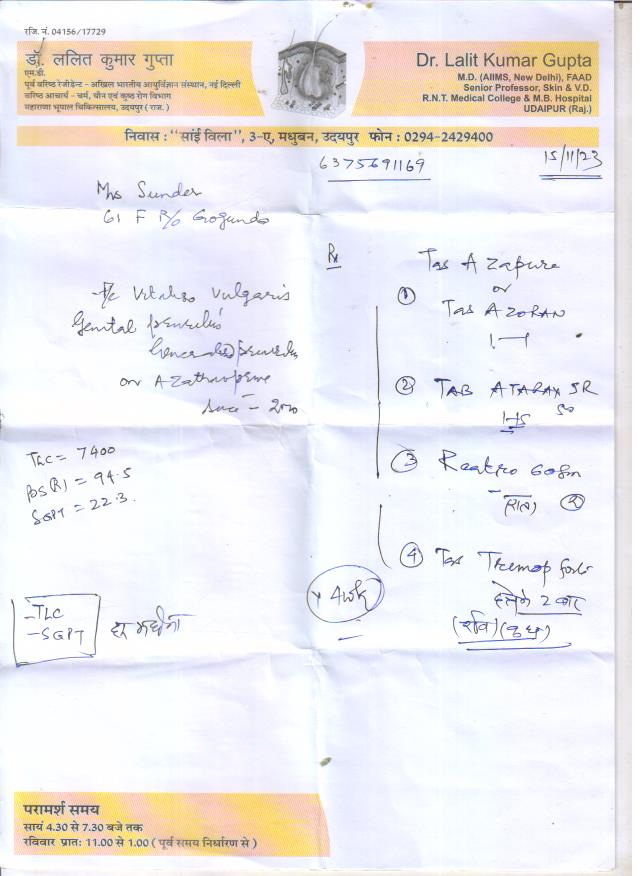 रजि. नं. 04156/17729
डॉ. ललित कुमार गुप्ता
एम.डी.
पूर्व वरिष्ठ रेजीडेन्ट - अखिल भारतीय आयुर्विज्ञान संस्थान, नई दिल्ली
वरिष्ठ आचार्य - चर्म, यौन एवं कुष्ठ रोग विभाग
महाराणा भूपाल चिकित्सालय, उदयपुर (राज.)
Dr. Lalit Kumar Gupta
M.D. (AIIMS, New Delhi), FAAD
Senior Professor, Skin & V.D.
R.N.T. Medical College & M.B. Hospital
UDAIPUR (Raj.)
निवास : "सांई विला", 3-ए, मधुबन, उदयपुर फोन : 0294-2429400
6375691169
15/11/23
Mrs Sunder
61 F R/o Gogunda
Vulgaris
Genital
on Azathioprine
since -
TLC = 7400
= 94.5
SGPT = 22.3
-TLC
-SGPT
हर महीना
Rx
① Tab AZapure
or
Tab AZORAN
1-1
② TAB ATARAX SR
③
(रात)
④ Tab
हफ्ते 2 बार
(रवि) (बुध)
x 4wk
परामर्श समय
सायं 4.30 से 7.30 बजे तक
रविवार प्रातः 11.00 से 1.00 ( पूर्व समय निर्धारण से )